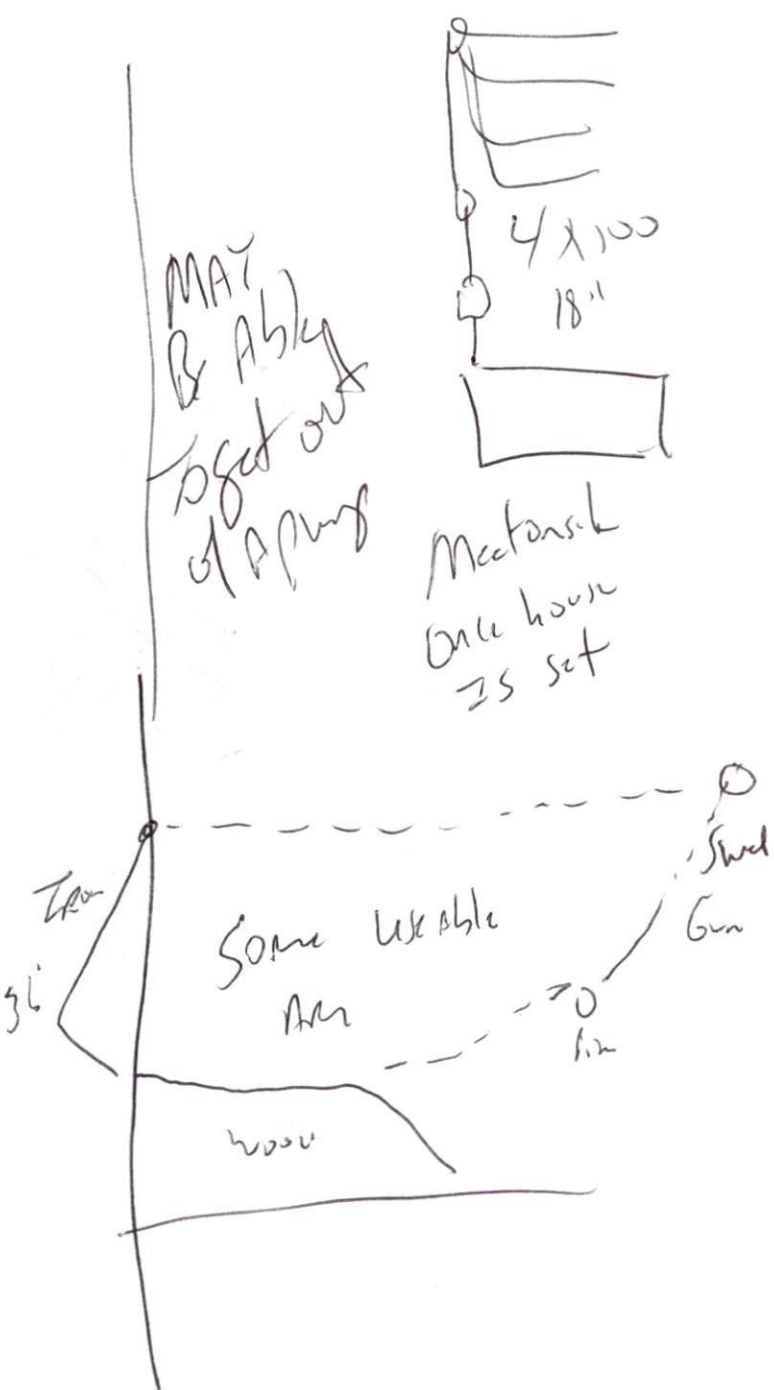 4 X 100
18"
MAY
Be Able
To get out
of A pump
Meet onsite
Once house
Is set
Iron
Sweet
Gum
Some Useable
Area
36'
Pin
Wood